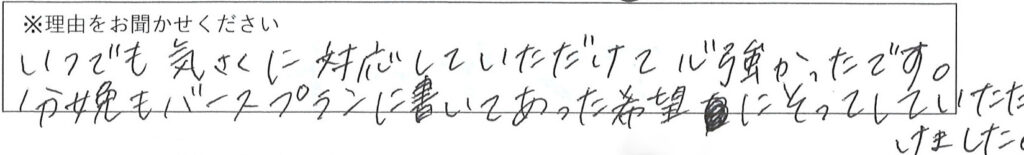 ※理由をお聞かせください
いつでも気さくに対応していただけて心強かったです。
分娩もバースプランに書いてあった希望にそってしていただ
けました。